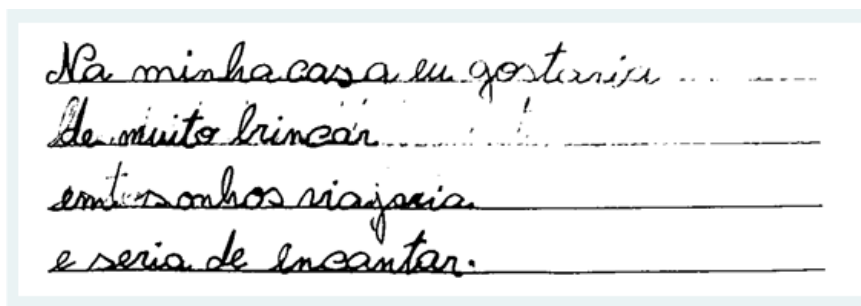 Na minha casa eu gostaria
de muito brincar
em sonhos viajaria
e seria de encantar.